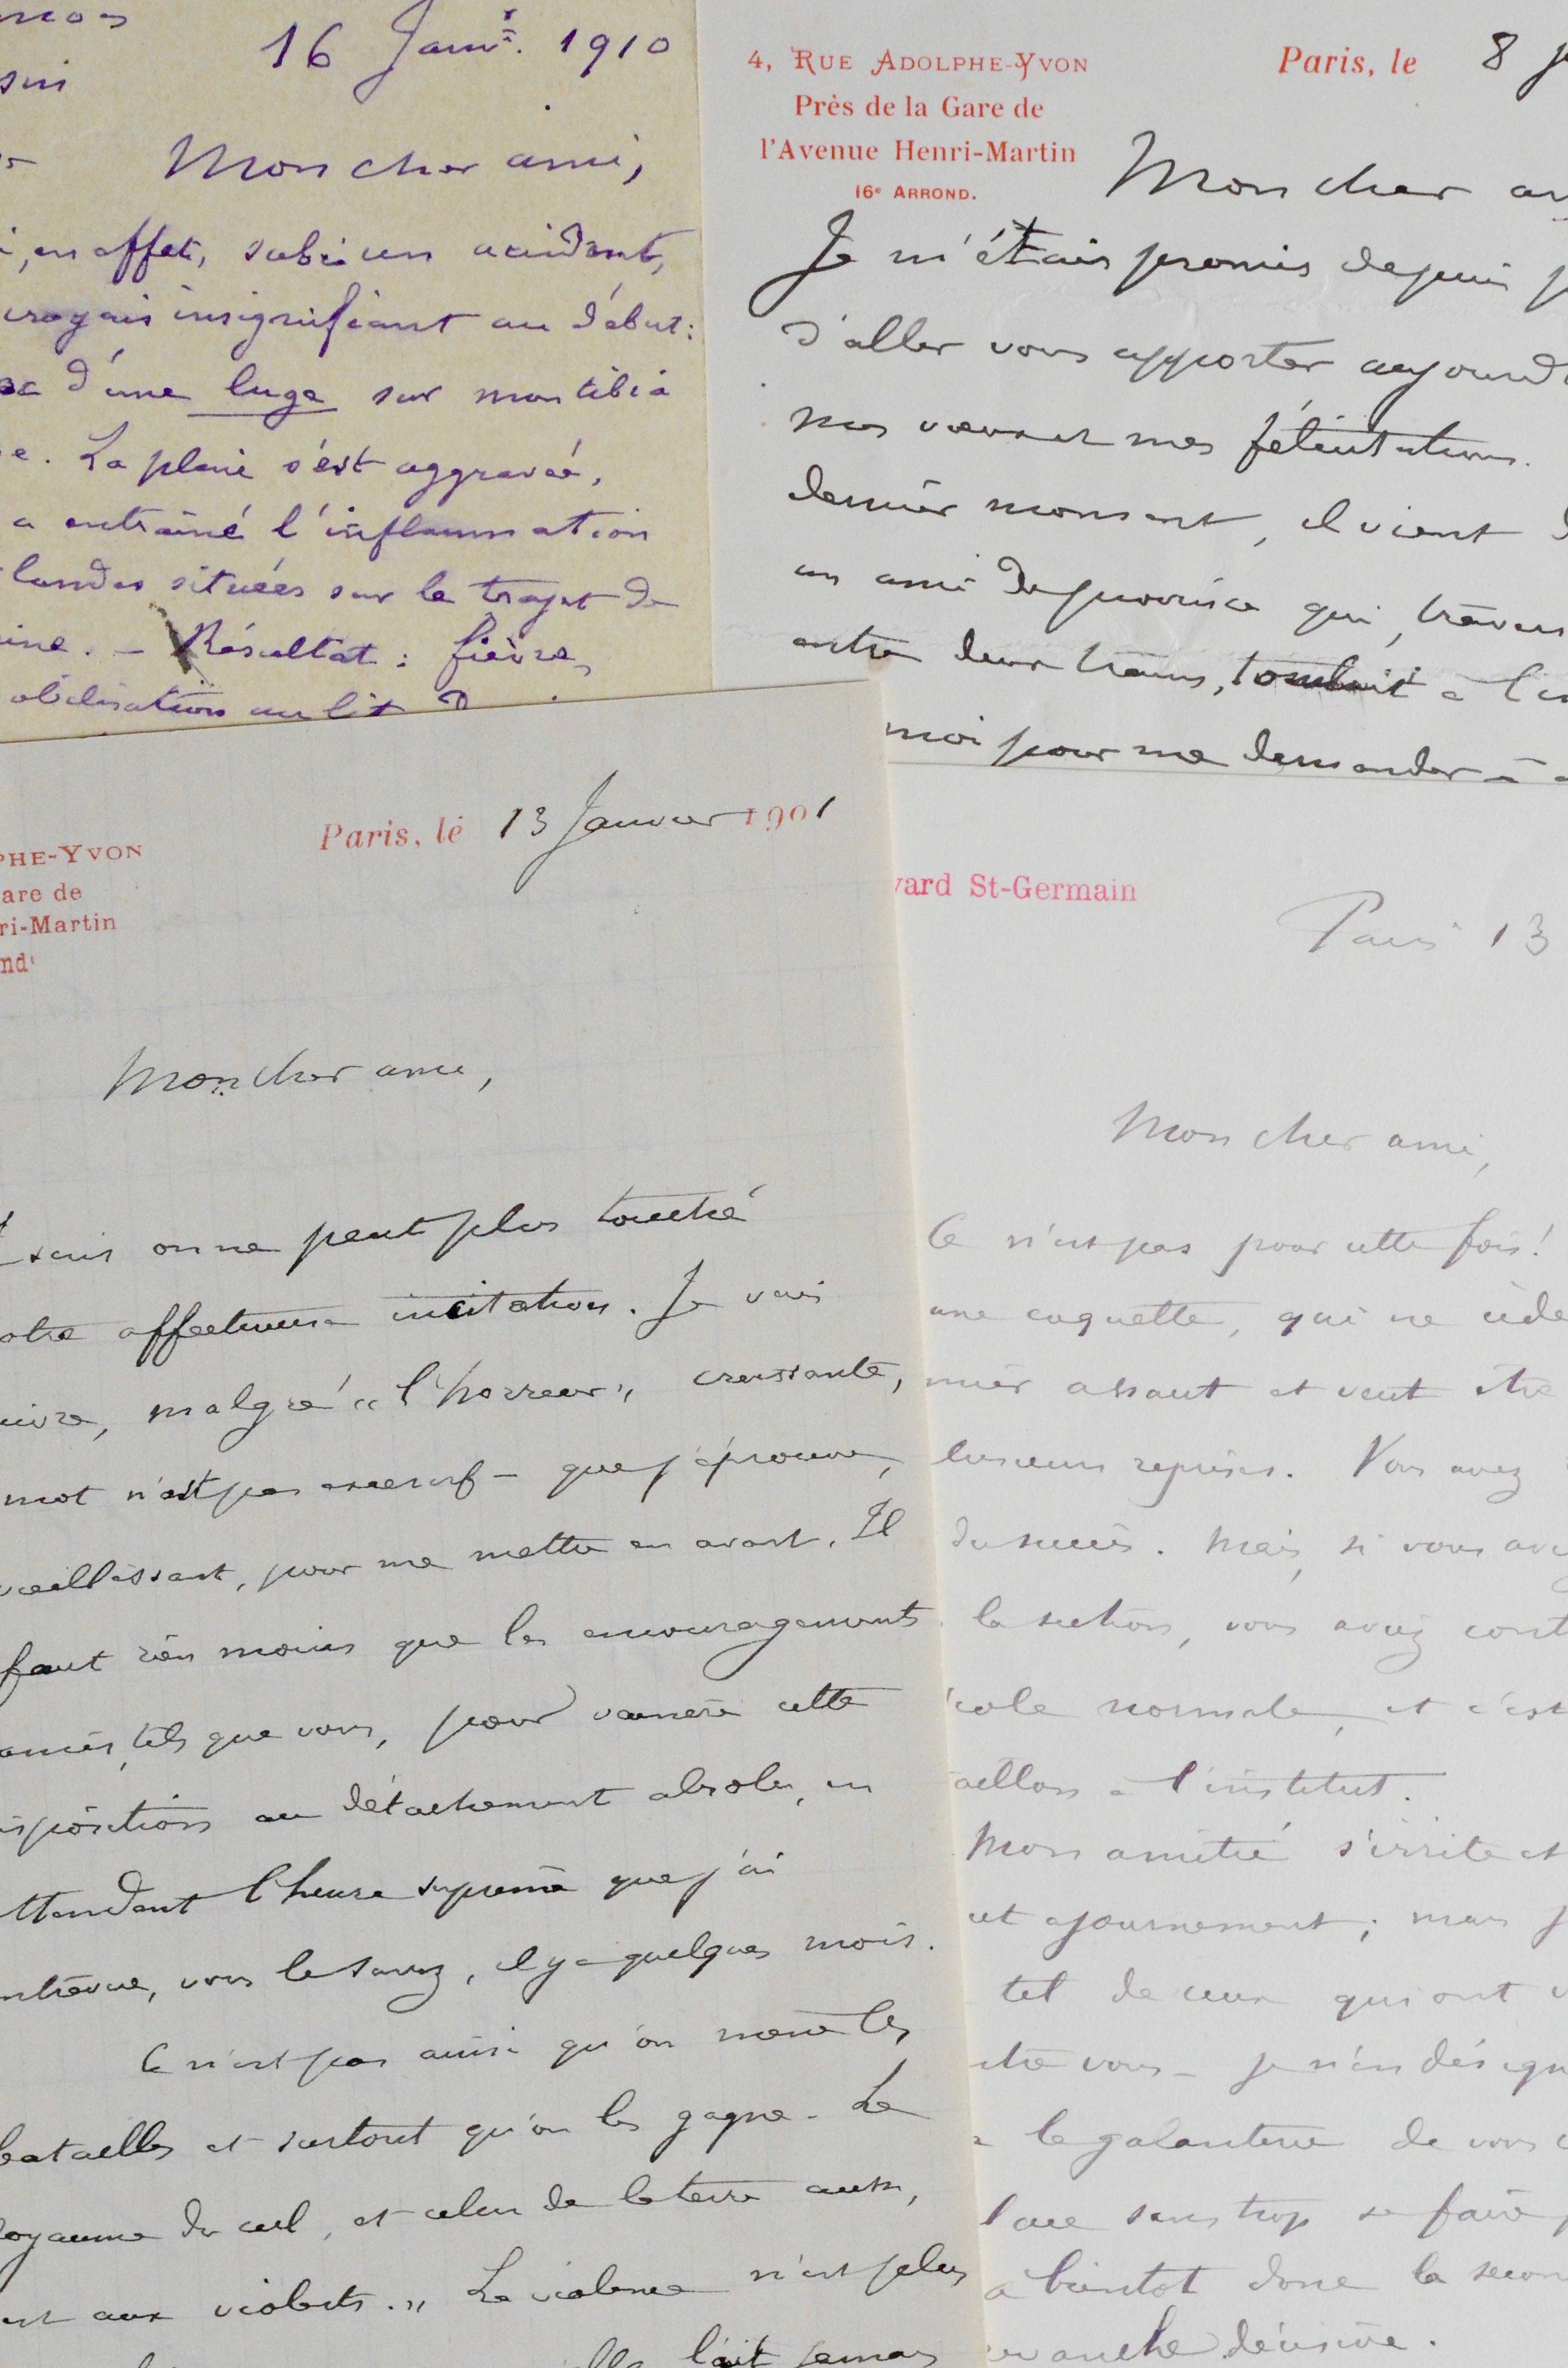 16 Janvr. 1910
Mon cher ami,
, en effet, subi un accident,
croyais insignifiant au début :
d'une luge sur mon tibia
e. La plaie s'est aggravée,
a entraîné l'inflammation
situées sur le trajet de
ine. – Résultat : fièvre,
au lit
4, RUE ADOLPHE-YVON
Près de la Gare de
l'Avenue Henri-Martin
16e ARROND.
Paris, le 8
Mon cher
Je m'étais promis depuis
d'aller vous apporter aujourd
mes vœux et mes félicitations.
dernier moment, il vient
un ami de province qui, travers
entre deux trains, tombait à l'im
moi pour me demander à
PHE-YVON
are de
ri-Martin
nd
Paris, le 13 Janvier 1901
Mon cher ami,
suis on ne peut plus touché
otre affectueuse incitation. Je vais
uivre, malgré « l'horreur » croissante,
mot n'est pas excessif – que j'éprouve,
vieillissant, pour me mettre en avant. Il
faut rien moins que les encouragements
amis, tels que vous, pour vaincre cette
isposition au détachement absolu, en
ttendant l'heure suprême que j'ai
ntrevue, vous le savez, il y a quelques mois.
Ce n'est pas ainsi qu'on mène les
batailles et surtout qu'on les gagne. Le
oyaume du ciel, et celui de la terre aussi,
est aux violents. » La violence n'est plus
jamais
vard St-Germain
Paris 13
Mon cher ami,
Ce n'est pas pour cette fois !
une coquette, qui ne cède
mier assaut et veut être
lusieurs reprises. Vous avez
du succès. Mais, si vous avi
la section, vous aviez cont
cole normale, et c'est
à l'institut.
Mon amitié s'irrite et
cet ajournement ; mais j
tel de ceux qui ont v
tre vous – je n'en désign
la galanterie de vous
sans trop se faire
à bientôt donc la secon
revanche décisive.